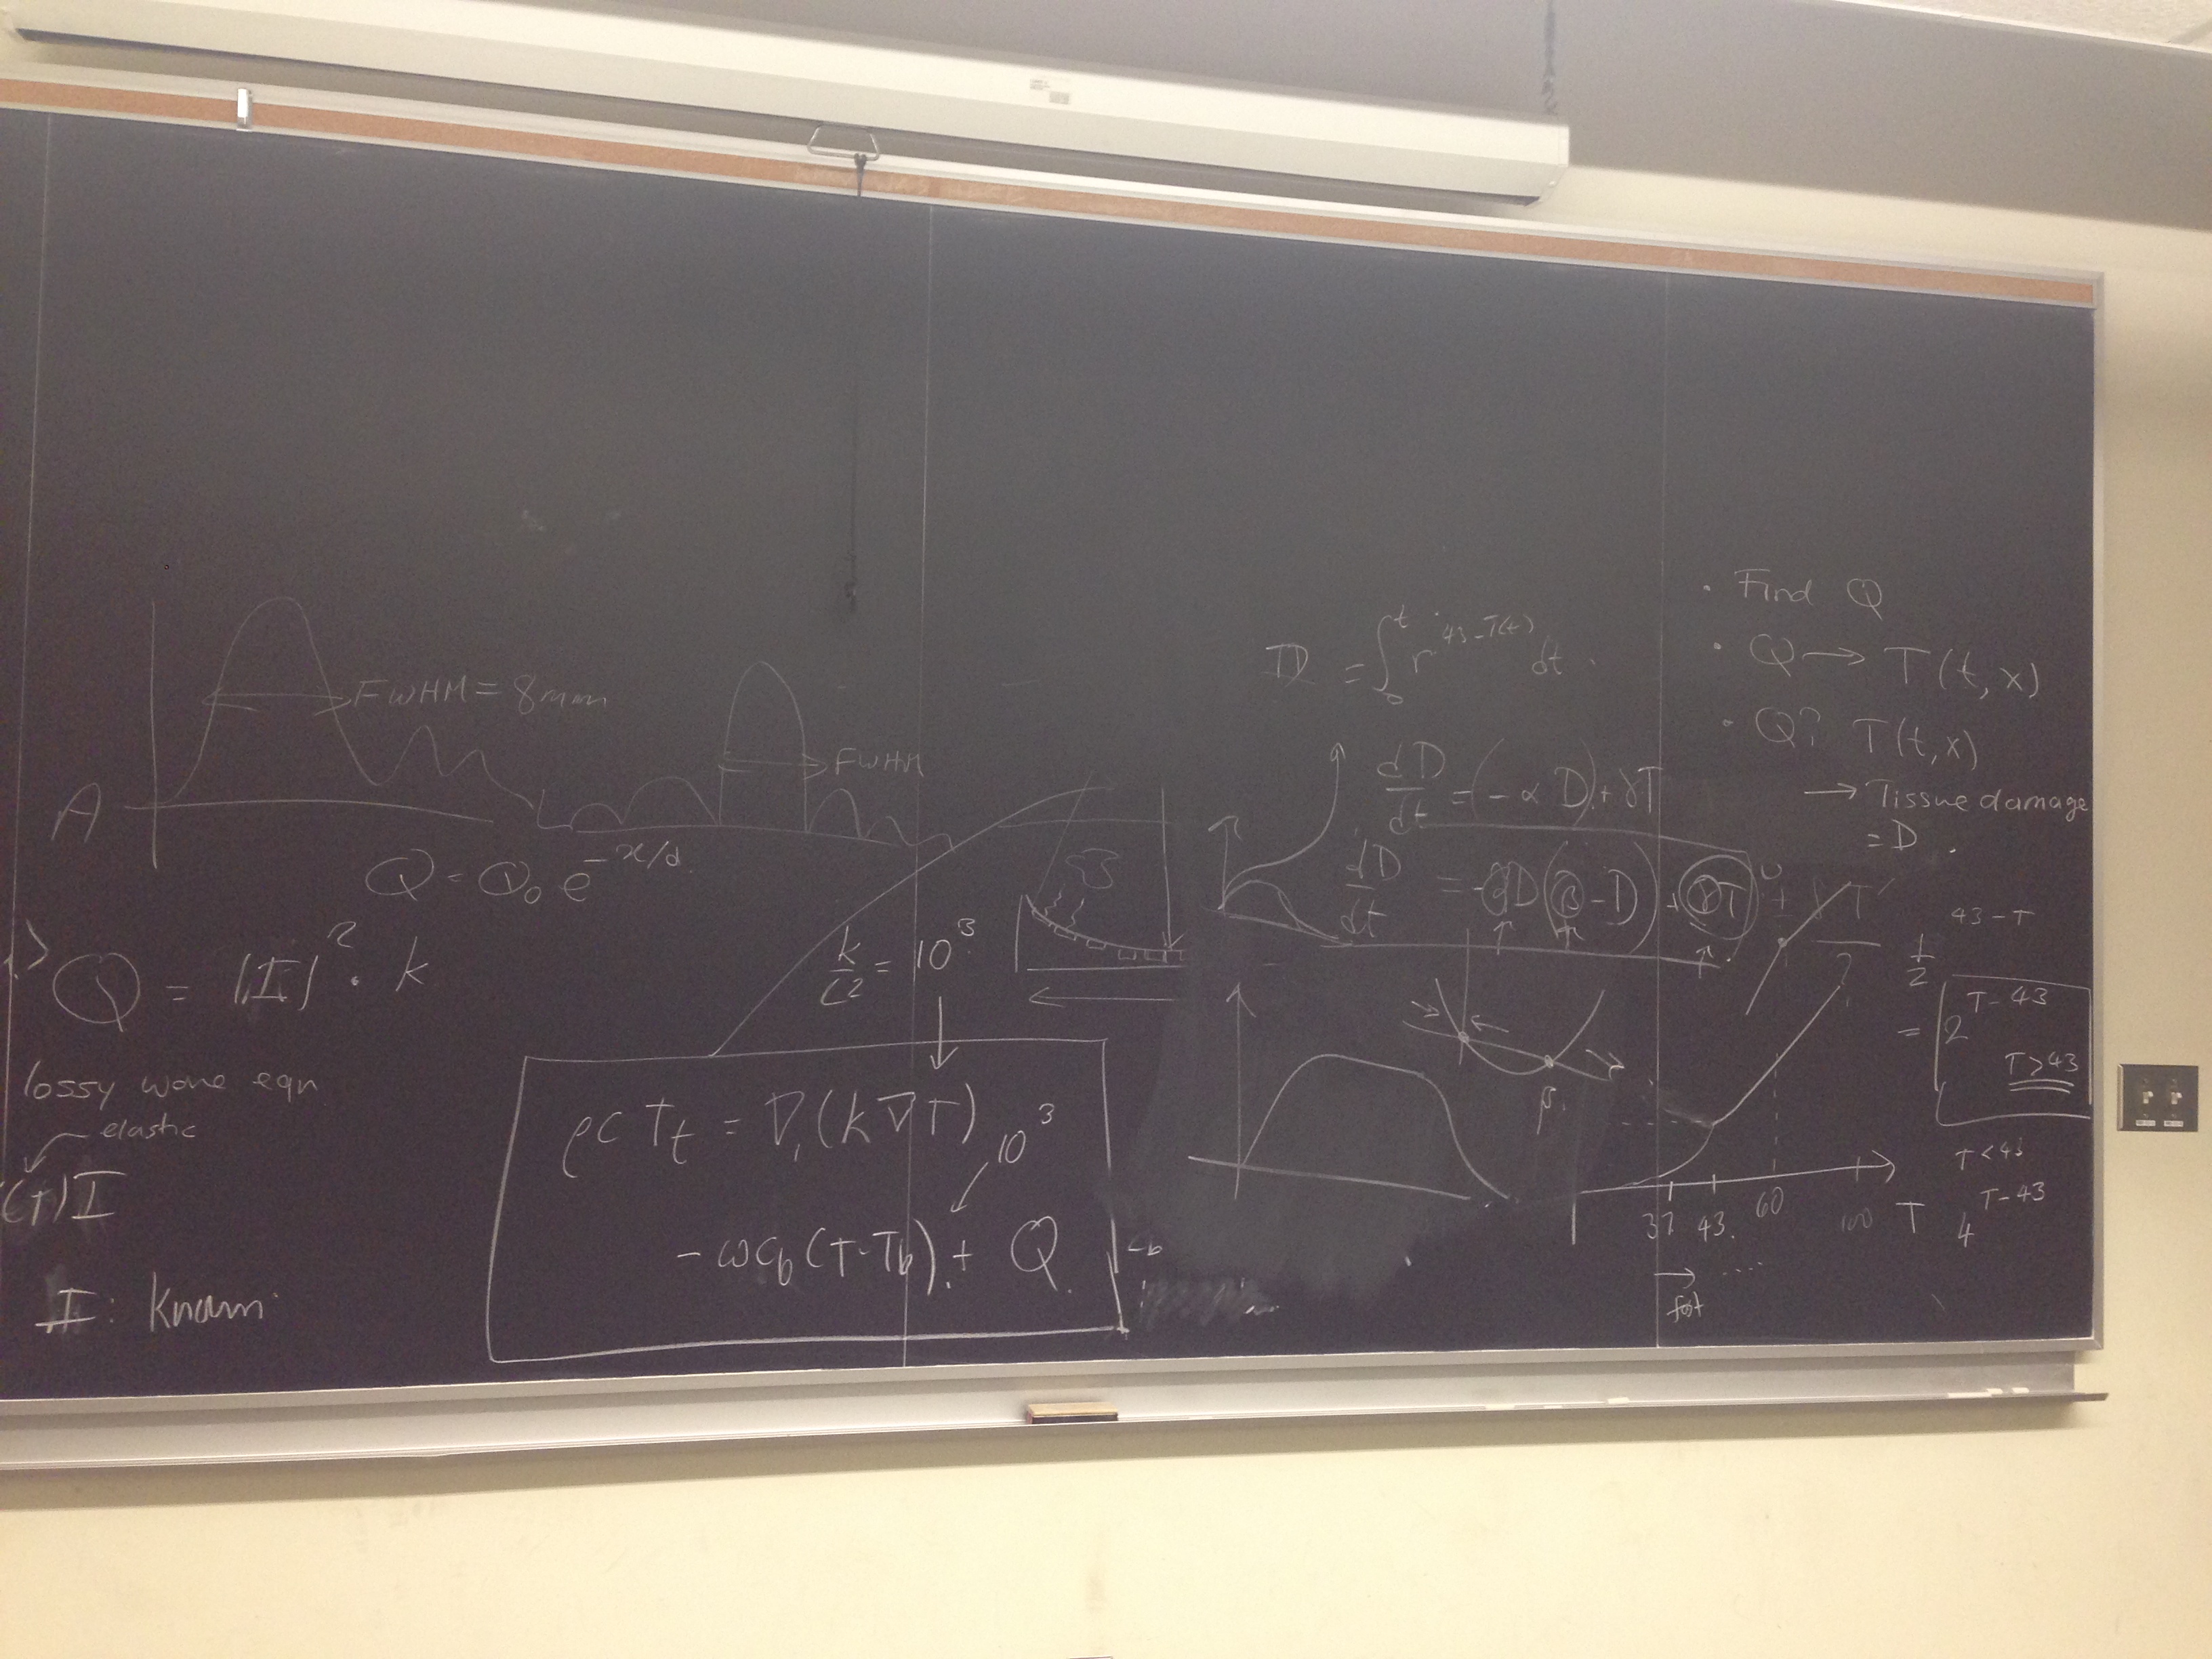 FWHM = 8mm
FWHM
A
Q = Q₀ e^{-x/d}
Q = |I|² · k
lossy wave eqn
elastic
(T)I
I : Known
k/L² = 10³
ρc T_t = ∇·(k∇T)
10³
- ωc_b(T-T_b) + Q
c_b
D = ∫₀^t r^{43-T(t)} dt
dD/dt = (-αD) + γT
dD/dt = -αD(β-D) + γT
β
· Find Q
· Q → T(t,x)
· Q? T(t,x)
→ Tissue damage
= D.
?
1/2^{43-T}
= 2^{T-43}
T>43
T<43
4^{T-43}
37 43 60 100 T
→ ....
fast